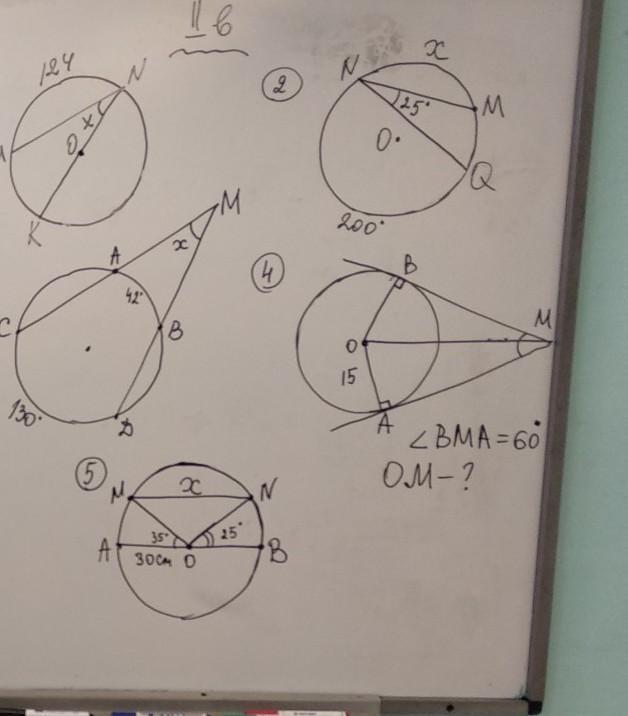 II в
124
N
x
O
K
2
N
x
M
25°
O
Q
200°
M
x
A
42°
C
B
130°
D
4
B
M
O
15
A
∠BMA=60°
OM-?
5
M
x
N
35°
25°
A
30см
O
B